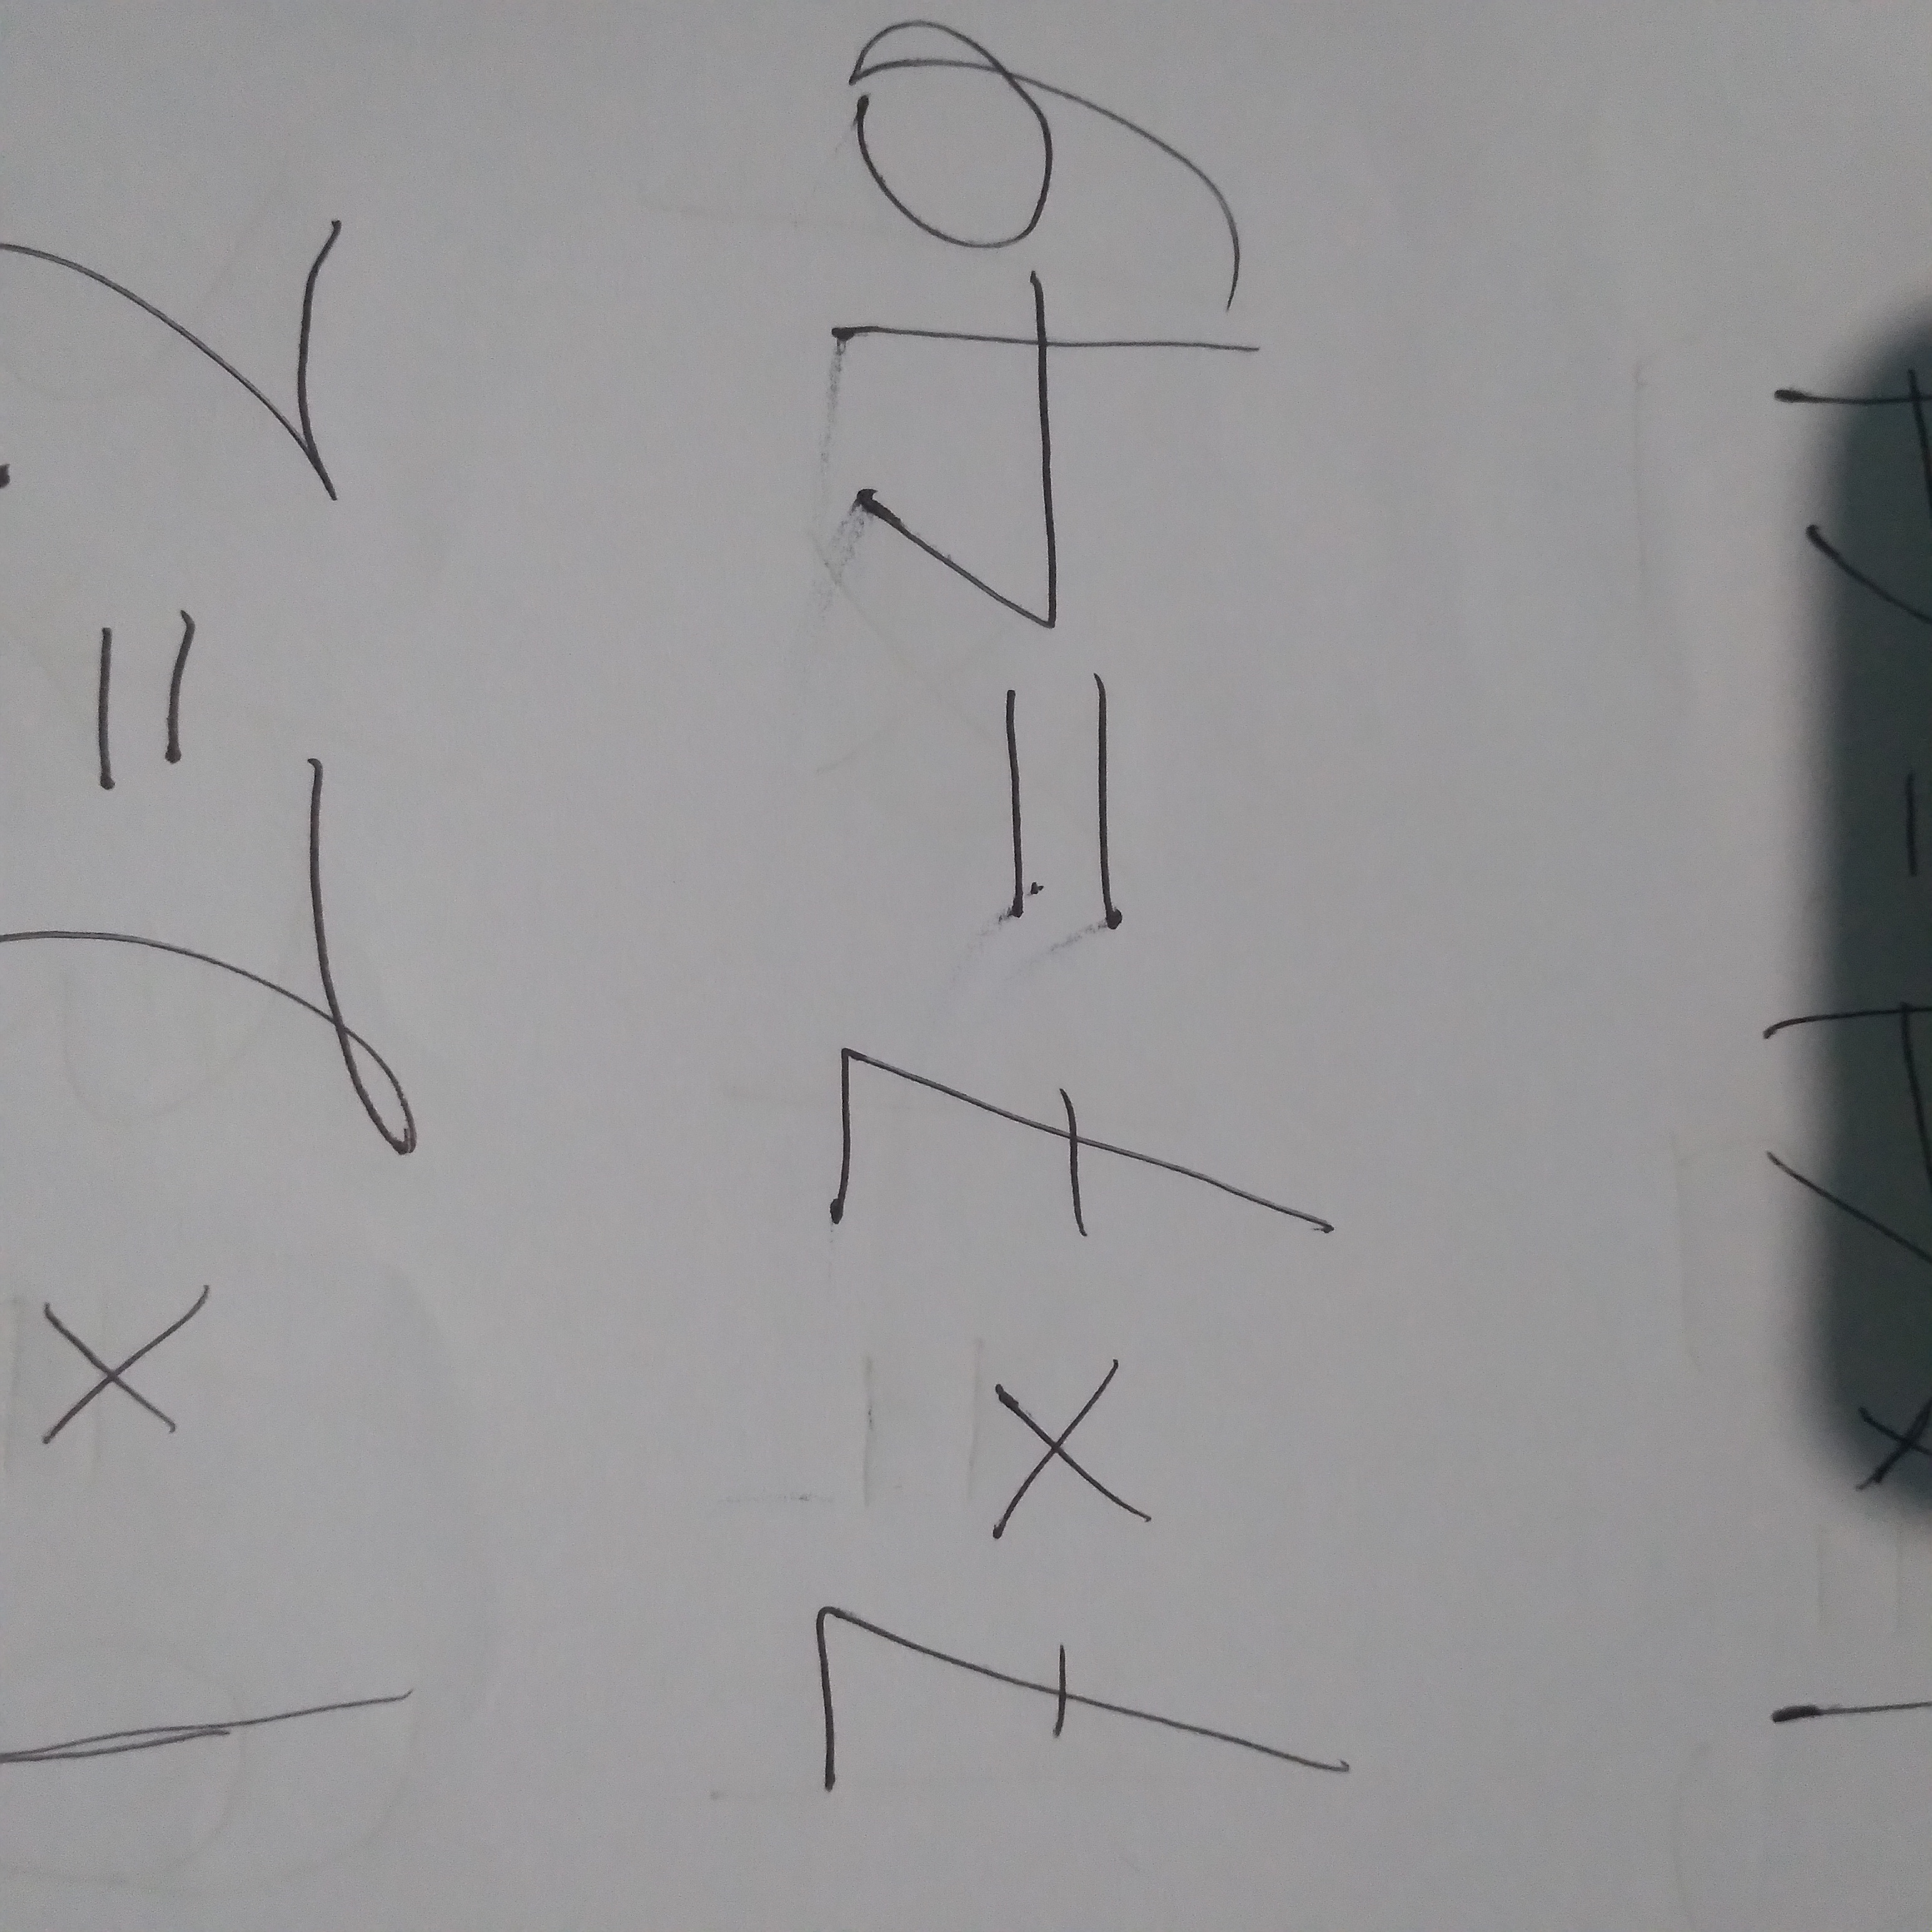 1 × 2 = 2
7 × 7 = 49
1 × 4 = 4